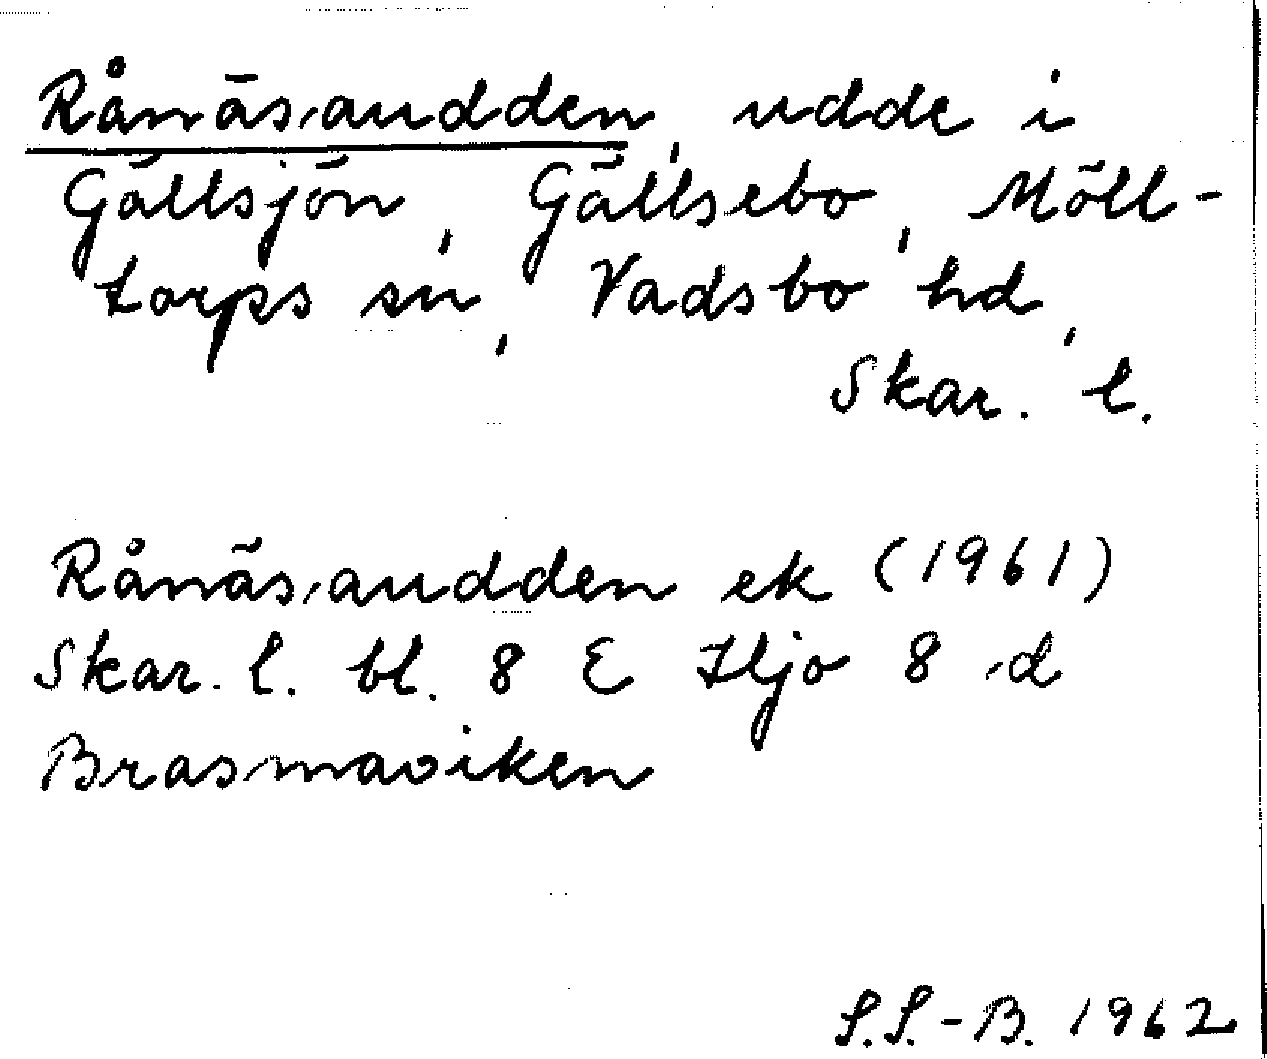 Rånäsaudden, udde i
Gällsjön, Gällsebo, Möll-
torps sn, Vadsbo hd,
Skar. l.
Rånäsaudden ek (1961)
Skar. l. bl. 8 E Hjo 8 d
Brasmaviken
S.S.-B. 1962